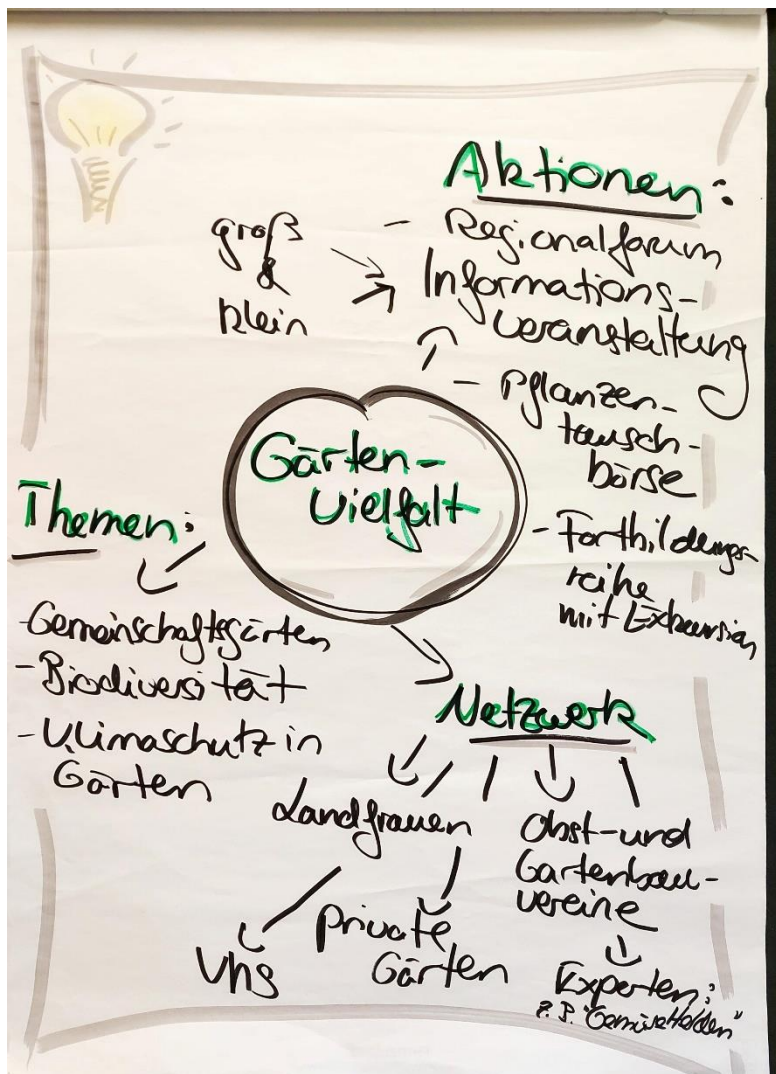 Aktionen:
groß
&
klein
- Regionalforum
Informations-
veranstaltung
- Pflanzen-
tausch-
börse
- Fortbildungs-
reihe
mit Exkursion
Gärten-
vielfalt
Themen:
- Gemeinschaftsgärten
- Biodiversität
- Klimaschutz in
Gärten
Netzwerk
Landfrauen
Obst- und
Gartenbau-
vereine
vhs
private
Gärten
Experten:
z.B. "GemüseHelden"